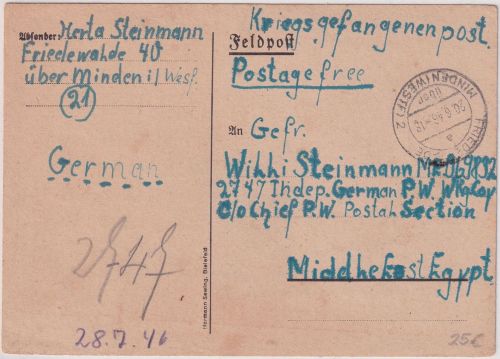 Absender: Herta Steinmann
Friedewalde 40
über Minden i/Westf.
(21)
German
2747
28.7.46
Kriegsgefangenenpost.
Feldpost
Postagefree
MINDEN (WESTF) 2
über
20.6.46-18
a
An Gefr.
Willi Steinmann
2747 Indep. German P.W. Wkg Coy
c/o Chief P.W. Postal Section
Middle East Egypt.
Hermann Seeling, Bielefeld
25€